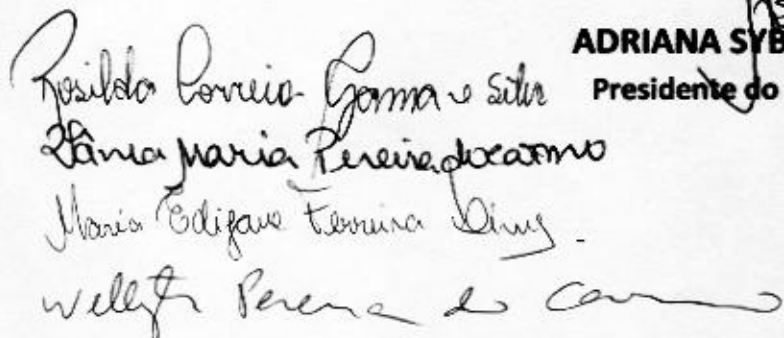 ADRIANA SYB
Presidente do
Rosilda Correia Gama e Silva
Vânia Maria Pereira do carmo
Maria Ferreira
Pereira do Carmo